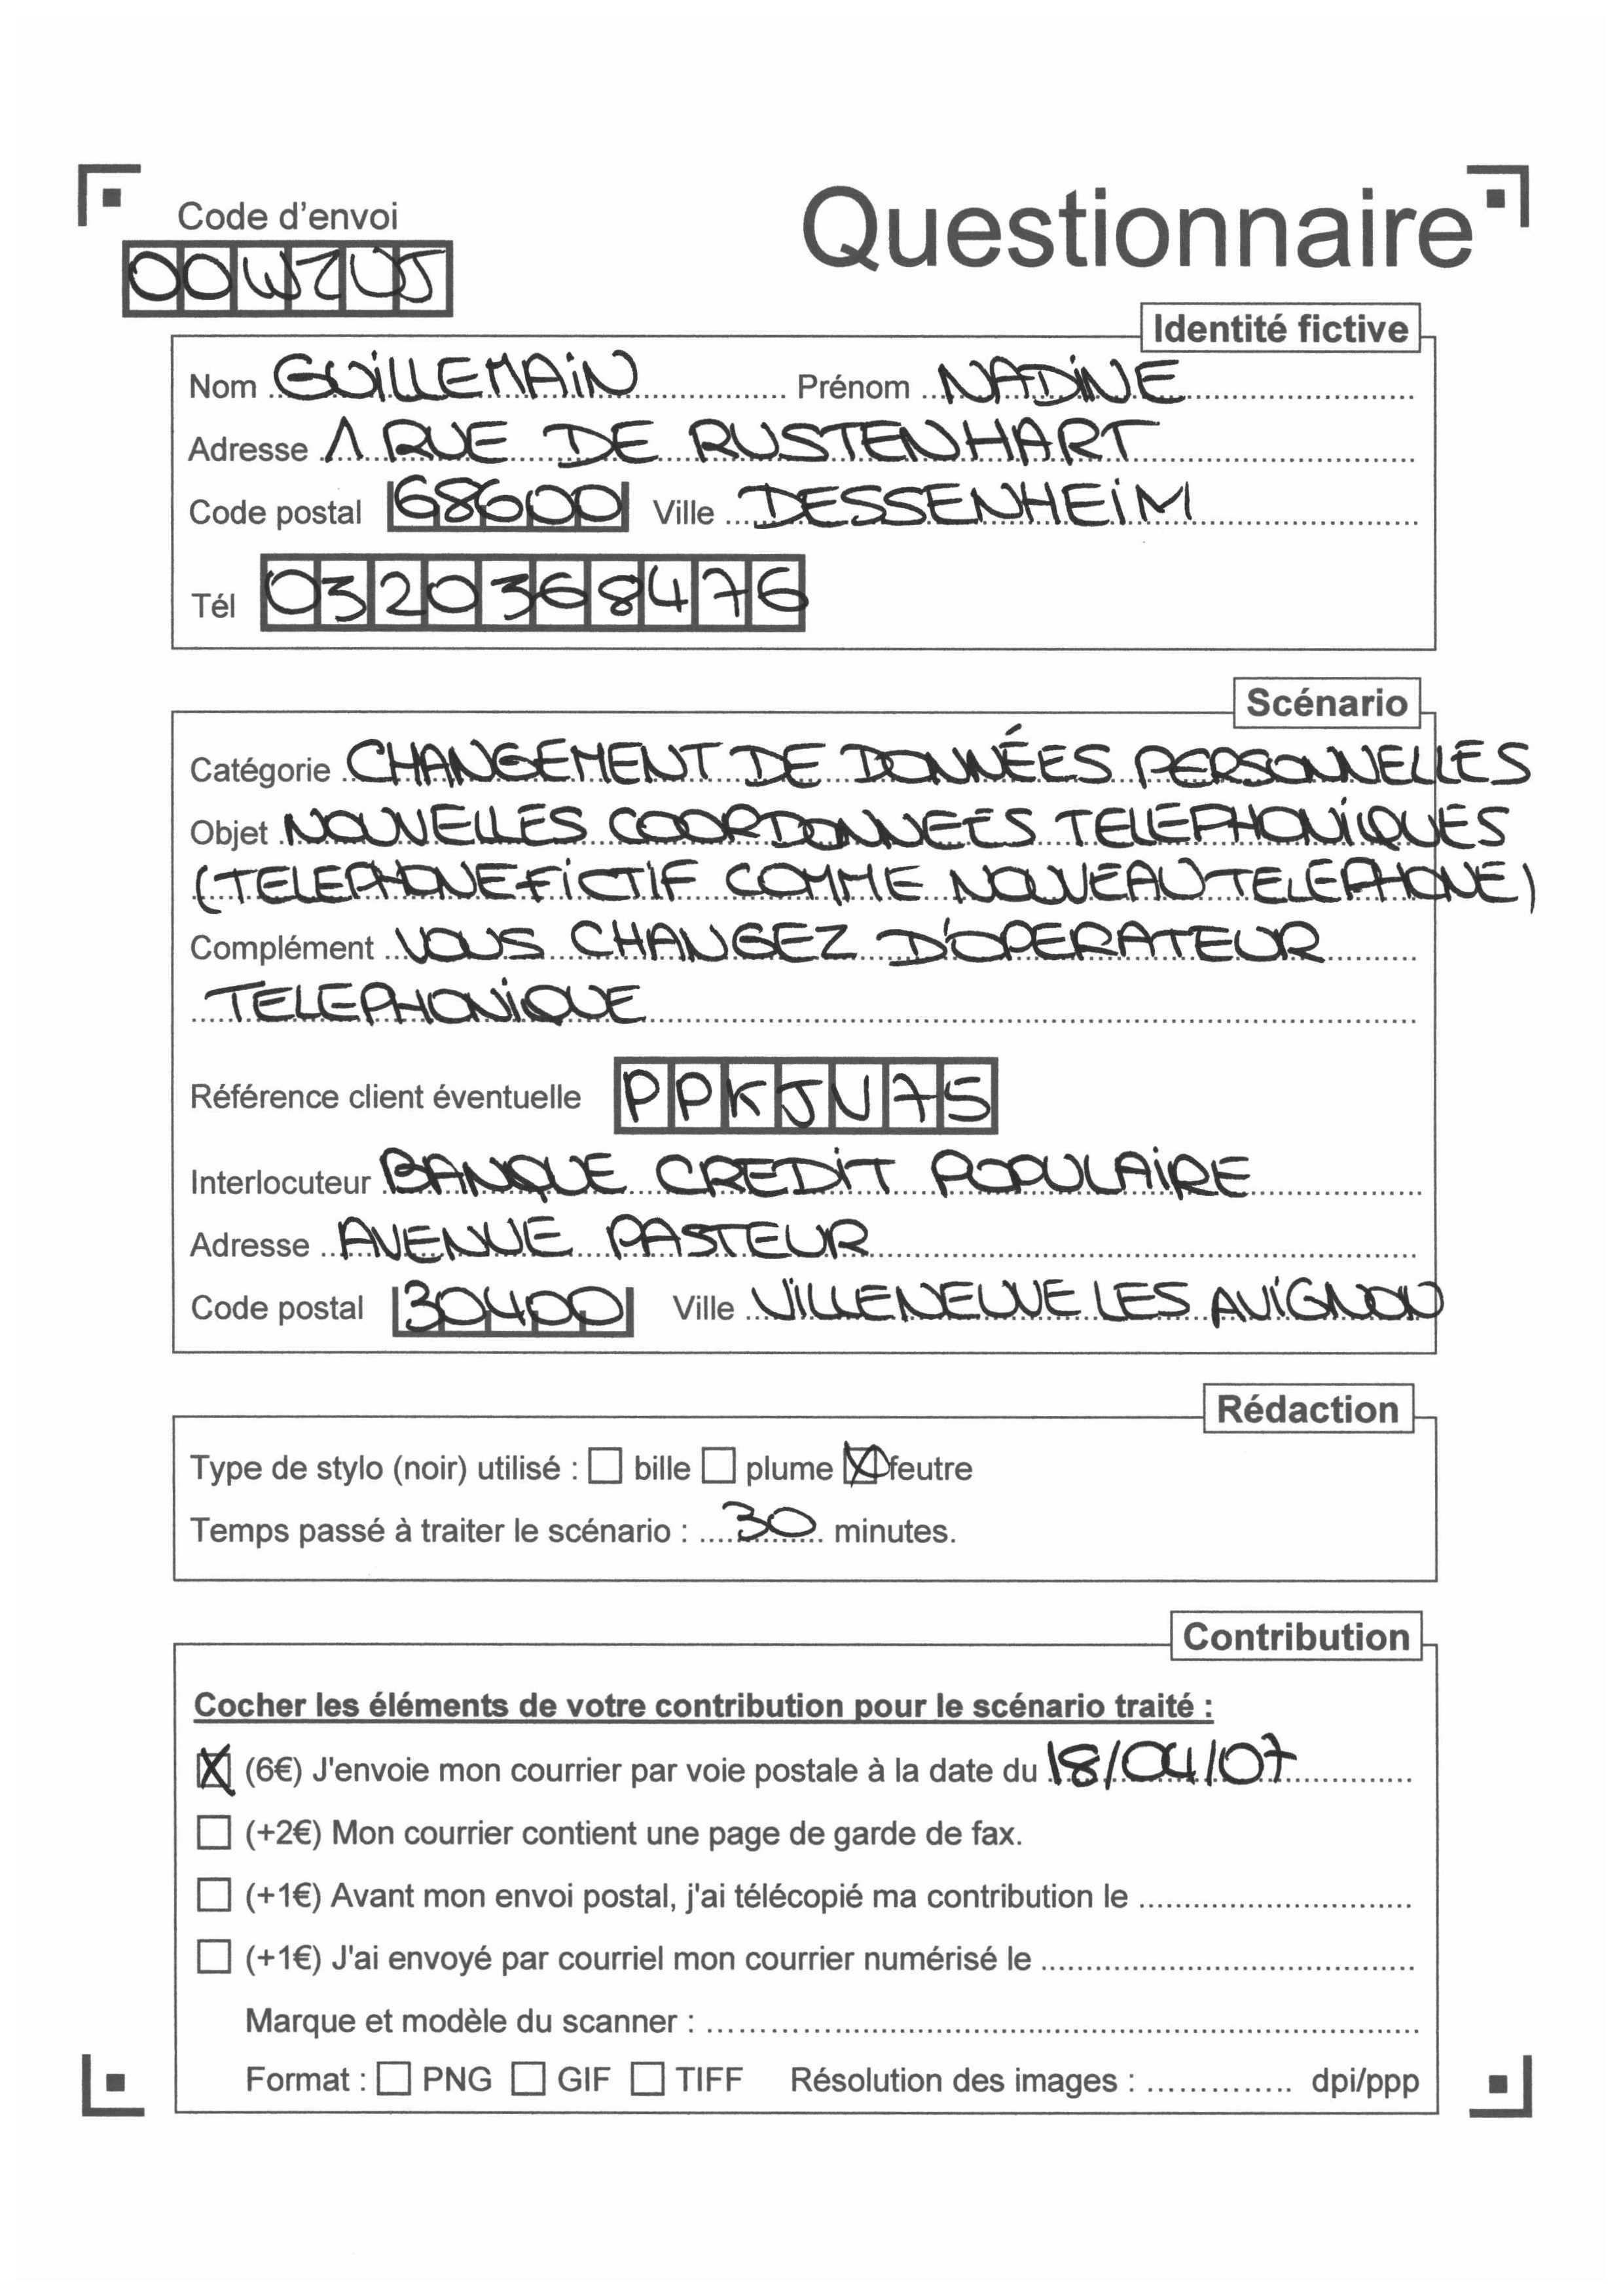 Code d'envoi
Questionnaire
00WZUJ
Identité fictive
Nom GUILLEMAIN Prénom NADINE
Adresse 1 RUE DE RUSTENHART
Code postal 68600 Ville DESSENHEIM
Tél 0320368476
Scénario
Catégorie CHANGEMENT DE DONNÉES PERSONNELLES
Objet NOUVELLES COORDONNEES TELEPHONIQUES
(TELEPHONE FICTIF COMME NOUVEAU TELEPHONE)
Complément VOUS CHANGEZ D'OPERATEUR
TELEPHONIQUE
Référence client éventuelle PPKJN75
Interlocuteur BANQUE CREDIT POPULAIRE
Adresse AVENUE PASTEUR
Code postal 30400 Ville VILLENEUVE LES AVIGNON
Rédaction
Type de stylo (noir) utilisé : ☐ bille ☐ plume ☒ feutre
Temps passé à traiter le scénario : 30 minutes.
Contribution
Cocher les éléments de votre contribution pour le scénario traité :
☒ (6€) J'envoie mon courrier par voie postale à la date du 18/04/07
☐ (+2€) Mon courrier contient une page de garde de fax.
☐ (+1€) Avant mon envoi postal, j'ai télécopié ma contribution le
☐ (+1€) J'ai envoyé par courriel mon courrier numérisé le
Marque et modèle du scanner :
Format : ☐ PNG ☐ GIF ☐ TIFF Résolution des images : dpi/ppp